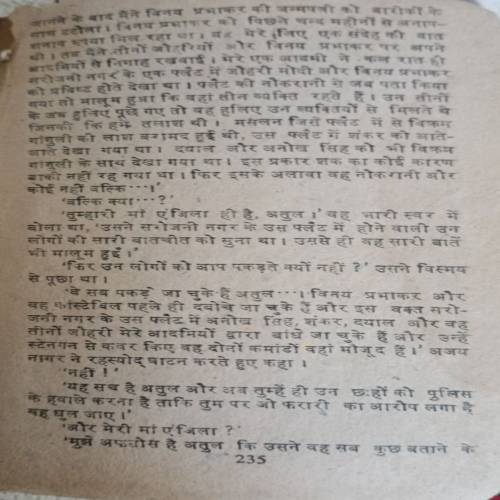 जानने के बाद मैंने विनय प्रभाकर की जन्मपत्री को बारीकी के
साथ टटोला। विनय प्रभाकर को पिछले चन्द महीनों से अनाप-
शनाप रुपया मिल रहा था। यह मेरे लिए एक संदेह की बात
थी। तब मैंने तीनों जौहरियों और विनय प्रभाकर पर अपने
आदमियों से निगाह रखवाई। मेरे एक आदमी ने कल रात ही
सरोजनी नगर के एक फ्लैट में जौहरी मोदी और विनय प्रभाकर
को प्रविष्ट होते देखा था। फ्लैट की नौकरानी से जब पता किया
गया तो मालूम हुआ कि वहां तीन व्यक्ति रहते हैं। उन तीनों
के जब हुलिए पूछे गए तो वह हुलिए उन व्यक्तियों से मिलते थे
जिनकी कि हमें तलाश थी। मसलन जिस फ्लैट में से विक्रम
गांगुली की लाश बरामद हुई थी, उस फ्लैट में शंकर को आते-
जाते देखा गया था। दयाल और अनोख सिंह को भी विक्रम
गांगुली के साथ देखा गया था। इस प्रकार शक का कोई कारण
बाकी नहीं रह गया था। फिर इसके अलावा वह नौकरानी और
कोई नहीं बल्कि...।'
'बल्कि क्या...?'
'तुम्हारी मां एंजिला ही है, अतुल।' वह भारी स्वर में
बोला था, 'उसने सरोजनी नगर के उस फ्लैट में होने वाली उन
लोगों की सारी बातचीत को सुना था। उससे ही वह सारी बातें
भी मालूम हुईं।'
'फिर उन लोगों को आप पकड़ते क्यों नहीं?' उसने विस्मय
से पूछा था।
'वे सब पकड़े जा चुके हैं अतुल...। विनय प्रभाकर और
वह कांस्टेबिल पहले ही दबोचे जा चुके हैं और इस वक्त सरो-
जनी नगर के उस फ्लैट में अनोख सिंह, शंकर, दयाल और वह
तीनों जौहरी मेरे आदमियों द्वारा बांधे जा चुके हैं और उन्हें
स्टेनगन से कवर किए वह दोनों कमांडो वहां मौजूद हैं।' अजय
नागर ने रहस्योद्घाटन करते हुए कहा।
'नहीं!'
'यह सच है अतुल और अब तुम्हें ही उन छःहों को पुलिस
के हवाले करना है ताकि तुम पर जो फरारी का आरोप लगा है
वह धुल जाए।'
'और मेरी मां एंजिला?'
'मुझे अफसोस है अतुल कि उसने वह सब कुछ बताने के
235